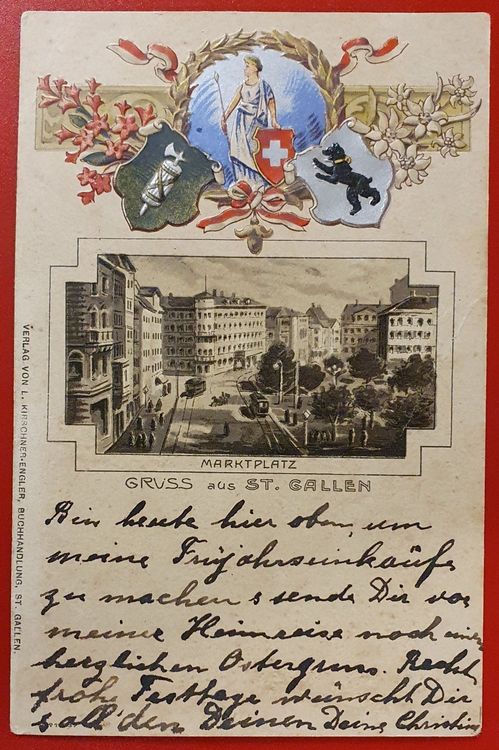 MARKTPLATZ
GRUSS aus ST. GALLEN
VERLAG VON L. KIRSCHNER-ENGLER, BUCHHANDLUNG, ST. GALLEN.
Bin heute hier oben, um
meine Früjahrseinkäufe
zu machen & sende Dir vor
meiner Heimreise noch einen
herzlichen Ostergruss. Recht
frohe Festtage wünscht Dir
& all' den Deinen Deine Christine